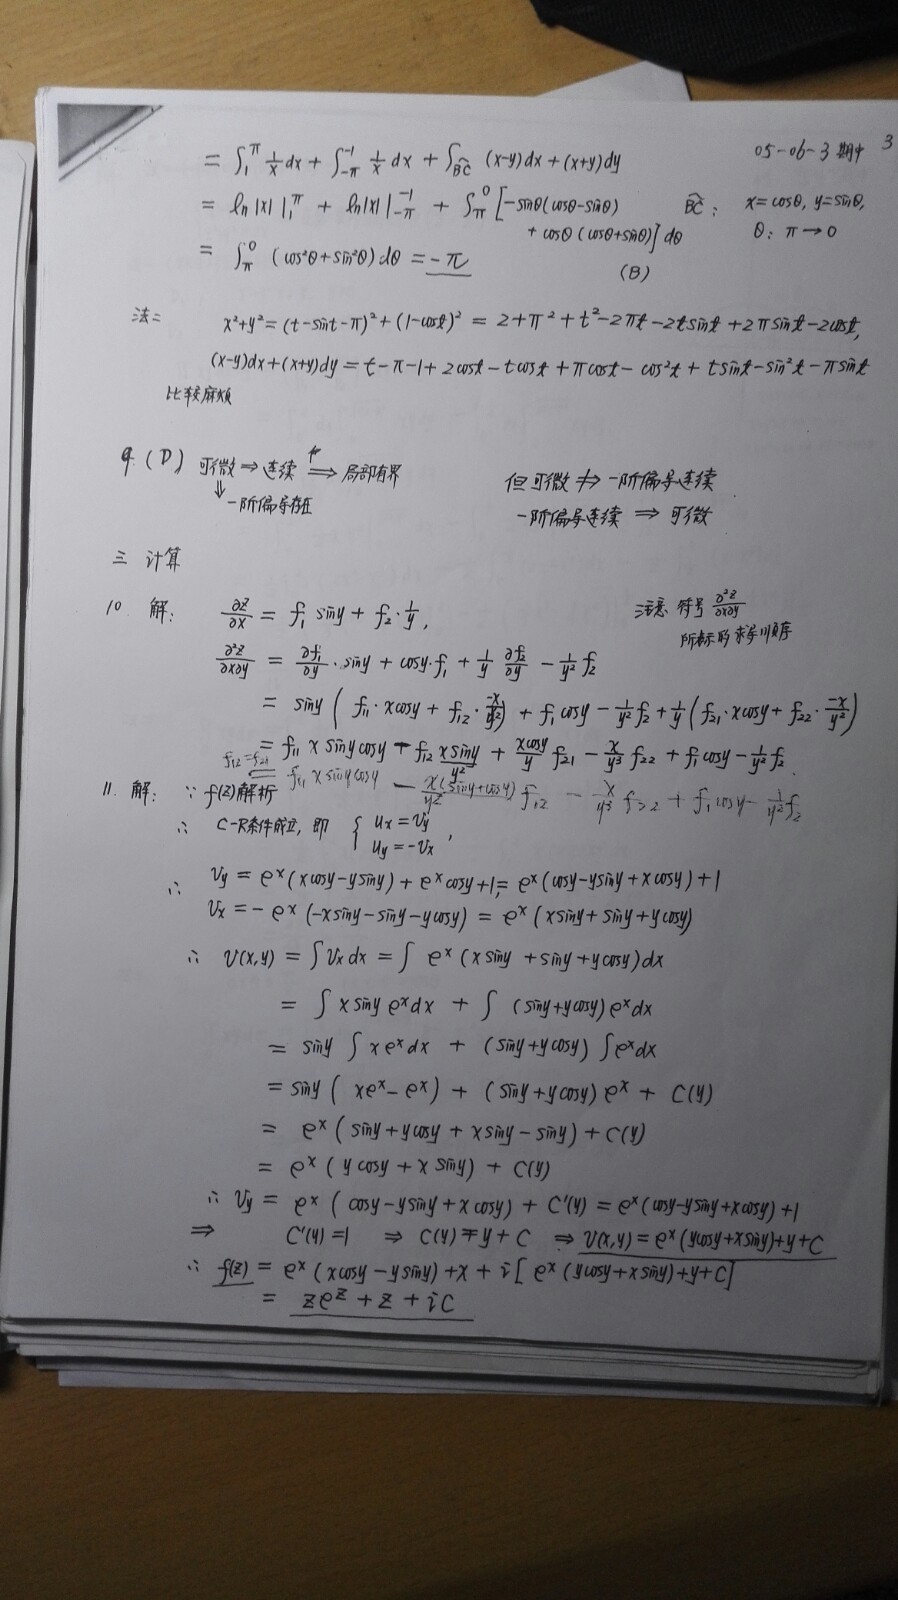 05-06-3 期中 3
= ∫₁^π 1/x dx + ∫_{-π}^{-1} 1/x dx + ∫_{BC⌢} (x-y)dx+(x+y)dy
= ln|x| |₁^π + ln|x| |_{-π}^{-1} + ∫_π^0 [-sinθ(cosθ-sinθ) + cosθ(cosθ+sinθ)] dθ
BC⌢: x=cosθ, y=sinθ, θ: π→0
= ∫_π^0 (cos²θ+sin²θ)dθ = -π (B)
法二 x²+y² = (t-sint-π)²+(1-cost)² = 2+π²+t²-2πt-2tsint+2πsint-2cost,
(x-y)dx+(x+y)dy = t-π-1+2cost-tcost+πcost-cos²t+tsint-sin²t-πsint
比较麻烦
9. (D) 可微 ⇒ 连续 ⇒ 局部有界
⇓ 一阶偏导存在
但可微 ⇏ 一阶偏导连续
一阶偏导连续 ⇒ 可微
三 计算
10. 解: ∂z/∂x = f₁ siny + f₂·1/y,
注意: 符号 ∂²z/∂x∂y
所标的求导顺序
∂²z/∂x∂y = ∂f₁/∂y·siny + cosy·f₁ + 1/y ∂f₂/∂y - 1/y² f₂
= siny ( f₁₁·xcosy + f₁₂·-x/y²) + f₁cosy - 1/y² f₂ + 1/y (f₂₁·xcosy + f₂₂·-x/y²)
= f₁₁ x sinycosy - f₁₂ xsiny/y² + xcosy/y f₂₁ - x/y³ f₂₂ + f₁cosy - 1/y² f₂
f₁₂=f₂₁ = f₁₁ x sinycosy - x(siny+cosy)/y² f₁₂ - x/y³ f₂₂ + f₁cosy - 1/y² f₂
11. 解: ∵ f(z)解析
∴ C-R条件成立, 即 { u_x = v_y
u_y = -v_x ,
∴ v_y = e^x(xcosy-ysiny)+e^x cosy+1 = e^x(cosy-ysiny+xcosy)+1
v_x = -e^x(-xsiny-siny-ycosy) = e^x(xsiny+siny+ycosy)
∴ v(x,y) = ∫v_x dx = ∫ e^x (xsiny+siny+ycosy)dx
= ∫ x siny e^x dx + ∫ (siny+ycosy)e^x dx
= siny ∫ xe^x dx + (siny+ycosy) ∫e^x dx
= siny ( xe^x-e^x) + (siny+ycosy) e^x + C(y)
= e^x(siny+ycosy+xsiny-siny)+C(y)
= e^x(ycosy+xsiny)+C(y)
∴ v_y = e^x(cosy-ysiny+xcosy)+C'(y) = e^x(cosy-ysiny+xcosy)+1
⇒ C'(y)=1 ⇒ C(y)=y+C ⇒ v(x,y)=e^x(ycosy+xsiny)+y+C
∴ f(z) = e^x(xcosy-ysiny)+x+i[e^x(ycosy+xsiny)+y+C]
= ze^z+z+iC